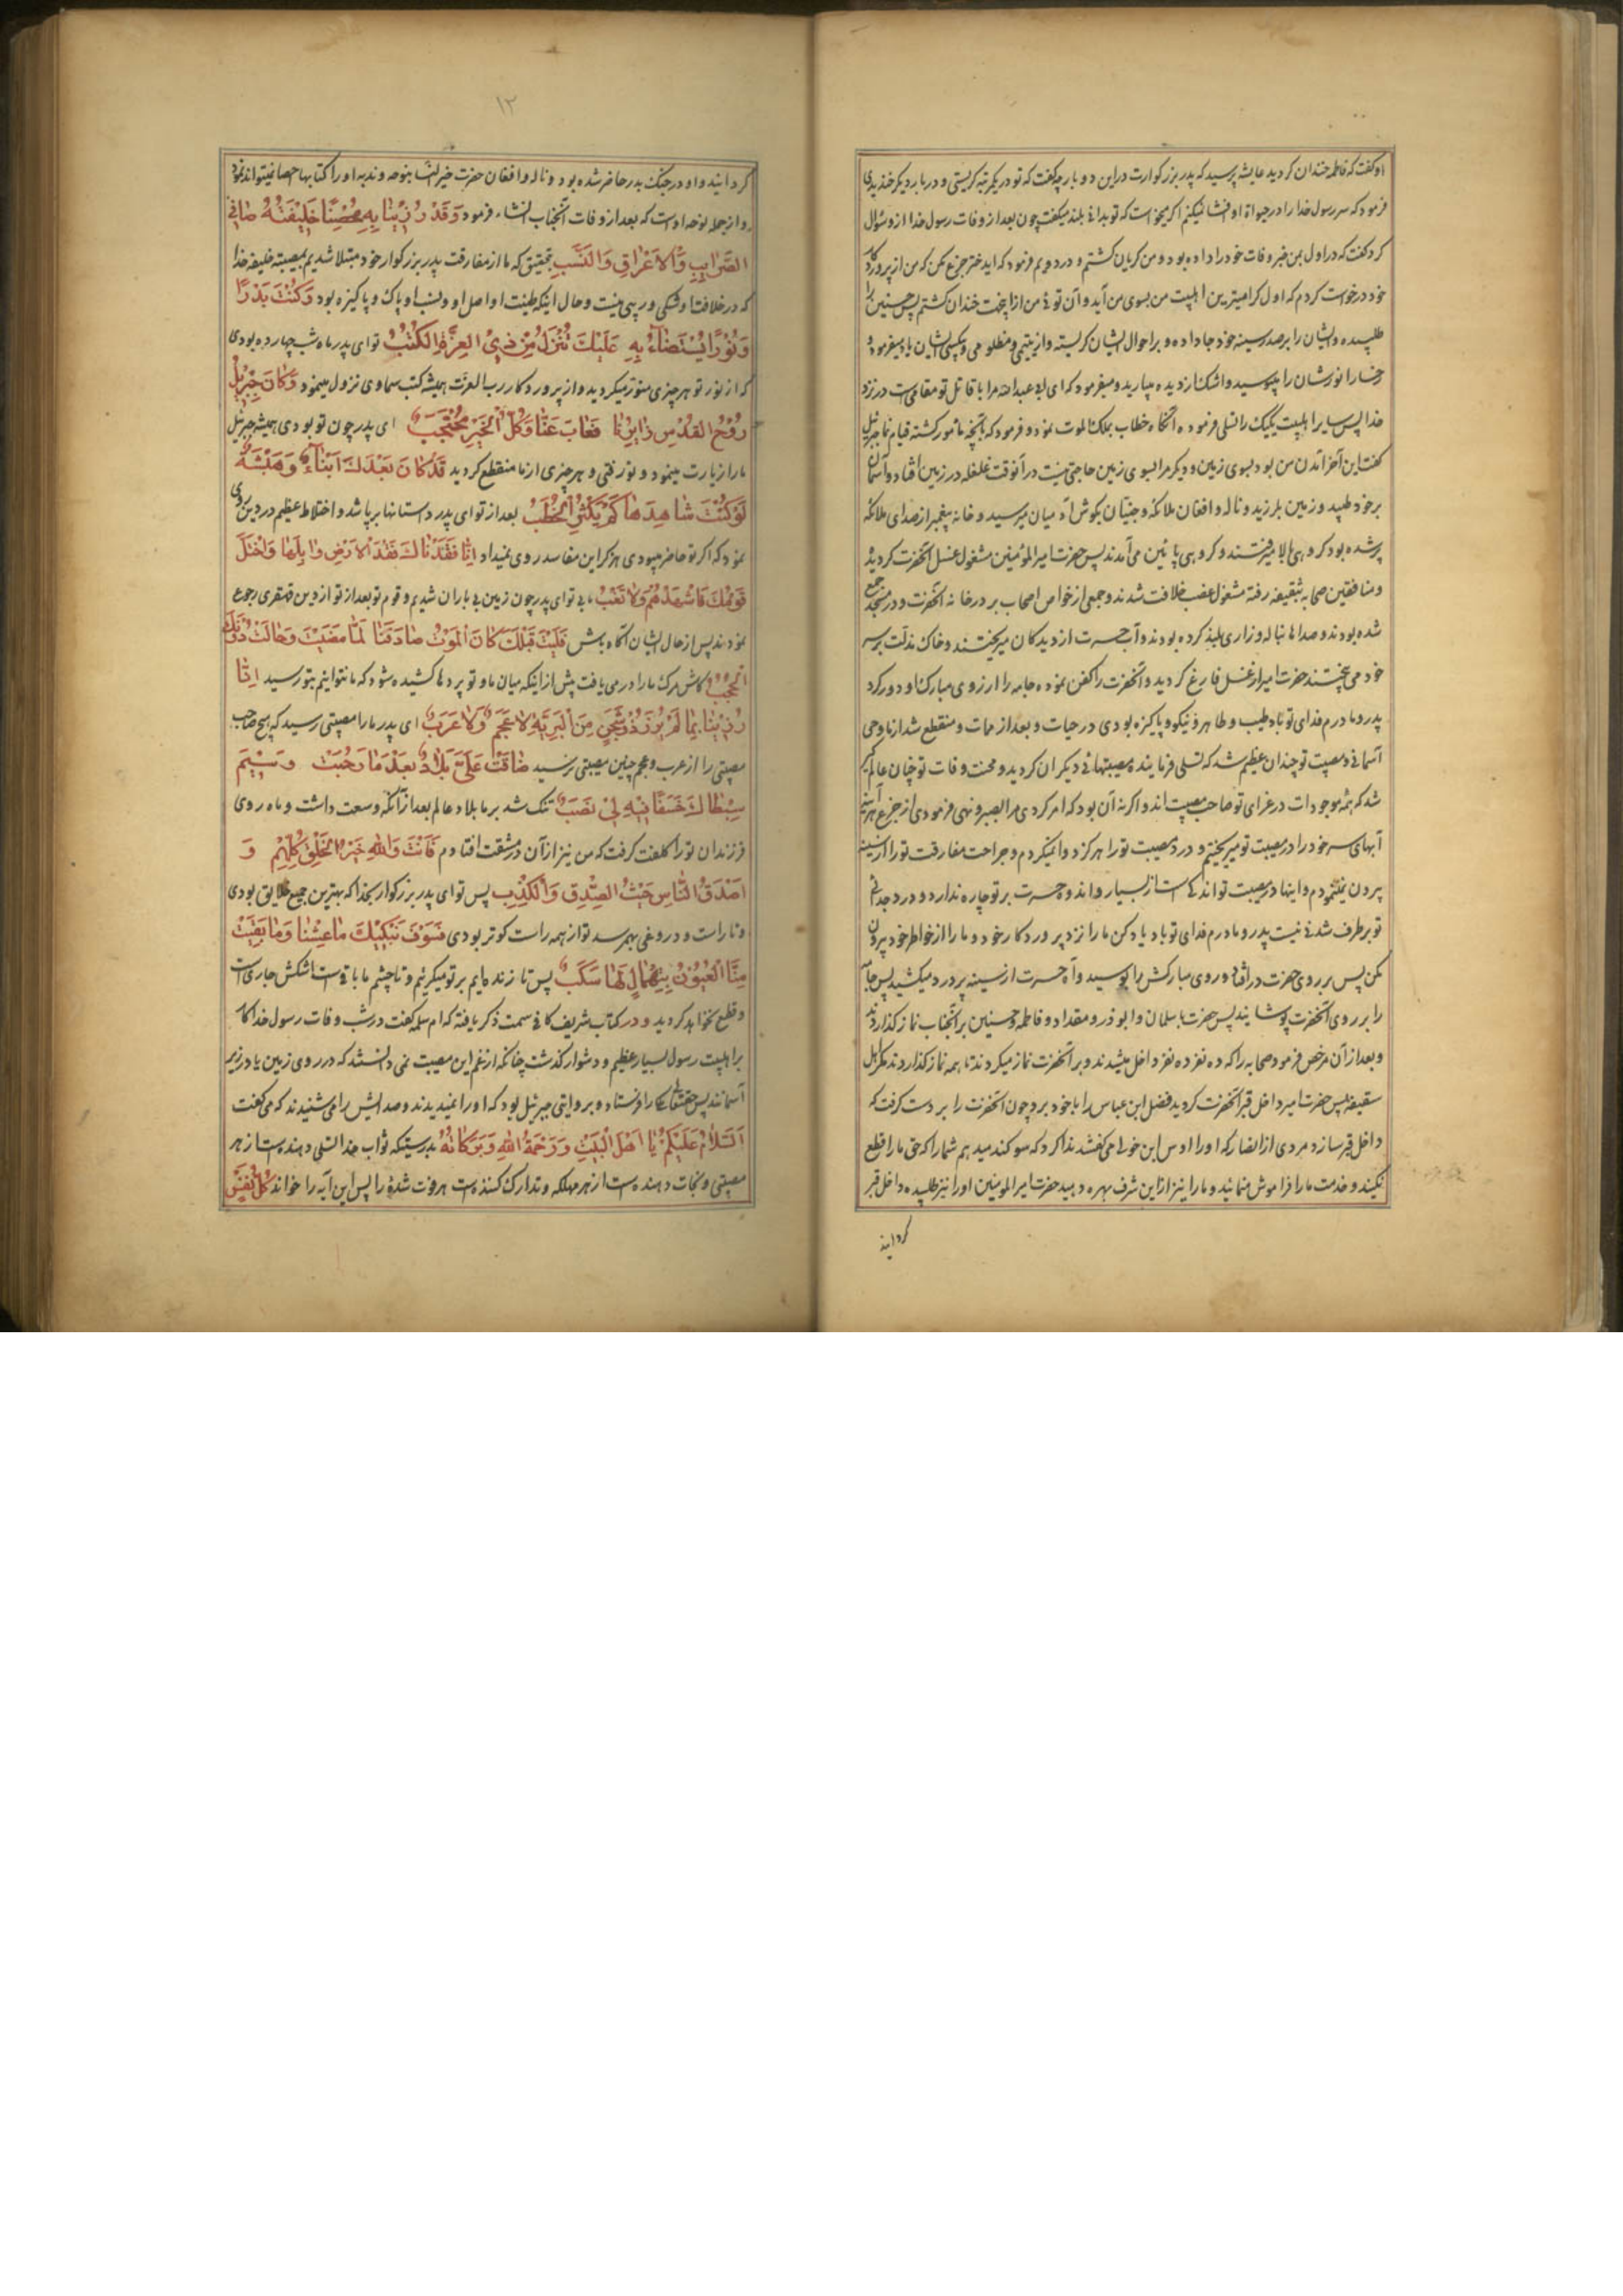 او گفت که فاطمه خندان گردید عایشه پرسید که پدر بزرگوارت در این دو بار چه گفت که تو در یکمرتبه گریستی و در بار دیگر خندیدی
فرمود که سر رسول خدا را در حیوة او افشا نمیکنم اگر میخواست که تو بدانی بلند میگفت چون بعد از وفات رسول خدا از او سئوال
کرد گفت که در اول بمن خبر وفات خود را داده بود و من گریان گشتم و در دویم فرمود که اید ختر جزع مکن که من از پروردکار
خود درخواست کردم که اول کرامیترین اهلبیت من بسوی من آید و آن توئی من از اینجهت خندان گشتم پس حسنین را
طلبیده و ایشان را بر صدر سینه خود جا داده و بر احوال ایشان گریسته و از یتیمی و مظلومی و بیکسی ایشان یاد میفرمود و
رخسار انورشان را میبوسید و اشک از دیده میبارید و میفرمود که ای ابی عبدالله مرا با قاتل تو مقامی است در نزد
خدا پس سایر اهلبیت یکیک را تسلی فرموده آنگاه خطاب بملک الموت نمود و فرمود که بآنچه مأمور گشته قیام نما جبرئیل
گفت این آخر آمدن من بود بسوی زمین و دیگر مرا بسوی زمین حاجتی نیست در آنوقت غلغله در زمین افتاد و آسمان
بر خود طپید و زمین بلرزید و ناله و افغان ملائکه و جنیان بگوش آدمیان میرسید و خانه پیغمبر از صدای ملائکه
پر شده بود گروهی بالا میرفتند و گروهی پائین می آمدند پس حضرت امیر المؤمنین مشغول غسل آنحضرت گردید
و منافقین صحابه بثقیفه رفته مشغول غصب خلافت شدند و جمعی از خواص اصحاب بر در خانه آنحضرت و در مسجد جمع
شده بودند و صداها بناله و زاری بلند کرده بودند و آب حسرت از دیدگان میریختند و خاک مذلت بر سر
خود می بیختند حضرت امیر از غسل فارغ گردید و آنحضرت را کفن نموده جامه را از روی مبارک او دور کرد
پدر و مادرم فدای تو باد طیب و طاهر و نیکو و پاکیزه بودی در حیات و بعد از ممات و منقطع شد از ما وحی
آسمانی و مصیبت تو چندان عظیم شد که تسلی فرماینده مصیبتهای دیگران گردید و محنت وفات تو چنان عالمگیر
شد که همه موجودات در عزای تو صاحب مصیبت اند و اگر نه آن بود که امر کردی مرا بصبر و نهی فرمودی از جزع هر آینه
آبهای سر خود را در مصیبت تو میریختیم و درد مصیبت تو را هرگز دوا نمیکردم و جراحت مفارقت تو را از سینه
بیرون نمینمودم و اینها در مصیبت تو اندکی است از بسیار و اندوه حسرت بر تو چاره ندارد و درد جدائی
تو بر طرف شدنی نیست پدر و مادرم فدای تو باد یاد کن ما را نزد پروردکار خود و ما را از خواطر خود بیرون
مکن پس بر روی حضرت در افتاد و روی مبارکش را بوسید و آه حسرت از سینه پر درد میکشید پس جامه
را بر روی آنحضرت پوشانید پس حضرت با سلمان و ابوذر و مقداد و فاطمه و حسنین بر آنجناب نماز گذاردند
و بعد از آن مرخص فرمود صحابه را که ده نفر ده نفر داخل میشدند و بر آنحضرت نماز میکردند تا همه نماز گذاردند مگر اهل
سقیفه پس حضرت امیر داخل قبر آنحضرت گردید فضل ابن عباس را با خود برد چون آنحضرت را بر دست گرفت که
داخل قبر سازد مردی از انصار که او را اوس ابن خولی می گفتند ندا کرد که سوگند میدهم شما را که حق ما را قطع
نکنید و خدمت ما را فراموش منمائید و ما را نیز از این شرف بهره دهید حضرت امیر المومنین او را نیز طلبیده داخل قبر
گردانید
۱۲
گردانید و او در جنگ بدر حاضر شده بود و ناله و افغان حضرت خیر النسا بنوحه و ندبه او را کتابها احصا نمیتواند نمود
و از جمله نوحه او است که بعد از وفات آنجناب انشاء فرمود وَقَدْ رُزِينَا بِهِ مَحْضًا خَلِيفَتُهُ صَافِي
الضَّرَايِبِ وَالاَعْرَاقِ وَالنَّسَبِ بتحقیق که ما از مفارقت پدر بزرگوار خود مبتلا شدیم بمصیبة خلیفه خدا
که در خلافت او شکی و ریبی نیست و حال اینکه طینت او اصل او و نسب او پاک و پاکیزه بود وَكُنْتَ بَدْرًا
وَنُورًا يُسْتَضَاءُ بِهِ عَلَيْكَ تُنْزَلُ مِنْ ذِي العِزَّةِ الكُتُبُ تو ای پدر ماه شب چهارده بودی
که از نور تو هر چیزی منور میگردید و از پروردکار رب العزت همیشه کتب سماوی نزول مینمود وَكَانَ جِبْرِيلُ
رُوحُ القُدْسِ زَايِرُنَا فَغَابَ عَنَّا وَكُلُّ الخَيْرِ مُحْتَجَبُ ای پدر چون تو بودی همیشه جبرئیل
ما را زیارت مینمود و تو رفتی و هر چیزی از ما منقطع گردید قَدْ كَانَ بَعْدَكَ اَبْنَاءٌ وَهَنْبَثَةٌ
لَوْ كُنْتَ شَاهِدَهَا لَمْ يَكْثُرِ الخُطَبُ بعد از تو ای پدر داستانها برپا شد و اختلاط عظیم در دین روی
نمود که اگر تو حاضر میبودی هرگز این مفاسد روی نمیداد اِنَّا فَقَدْنَاكَ فَقْدَ الاَرْضِ وَابِلَهَا وَاخْتَلَّ
قَوْمُكَ فَاشْهَدْهُمْ وَلَا تَغِبْ ما بی تو ای پدر چون زمین بی باران شدیم و قوم تو بعد از تو از دین قهقری رجوع
نمودند پس از حال ایشان آگاه باش فَلَيْتَ قَبْلَكَ كَانَ المَوْتُ صَادَفَنَا لَمَّا مَضَيْتَ وَحَالَتْ دُونَكَ
الحُجُبُ کاش مرگ ما را در می یافت پیش از اینکه میان ما و تو پردها کشیده شود که ما نتوانیم بتو رسید اِنَّا
رُزِينَا بِمَا لَمْ يُرْزَ ذُو شَجَنٍ مِنَ البَرِيَّةِ لَا عَجَمٌ وَلَا عَرَبٌ ای پدر ما را مصیبتی رسید که هیچ صاحب
مصیبتی را از عرب و عجم چنین مصیبتی نرسید ضَاقَتْ عَلَيَّ بِلَادٌ بَعْدَ مَا رَحُبَتْ وَسِيْمَ
سِبْطَاكَ خَسْفًا فِيهِ لِي نَصَبٌ تنگ شد بر ما بلاد عالم بعد از آنکه وسعت داشت و ماه روی
فرزندان تو را کلفت گرفت که من نیز از آن در مشقت افتادم فَاَنْتَ وَاللهِ خَيْرُ الخَلْقِ كُلِّهِمْ وَ
اَصْدَقُ النَّاسِ حَيْثُ الصِّدْقِ وَالكَذِبِ پس تو ای پدر بزرگوار بخدا که بهترین جمیع خلایق بودی
و تا راست و دروغی بهم رسد تو از همه راست گوتر بودی فَسَوْفَ نَبْكِيْكَ مَا عِشْنَا وَمَا بَقِيَتْ
مِنَّا العُيُونُ بِتِهْمَالٍ لَهَا سَكَبُ پس تا زنده ایم بر تو میگرئیم و تا چشم ما باقی است اشکش جاری است
و قطع نخواهد گردید و در کتاب شریف کافی سمت ذکر یافته که ام سلمه گفت در شب وفات رسول خدا کار
بر اهلبیت رسول بسیار عظیم و دشوار گذشت چنانکه از غم این مصیبت نمی دانستند که در روی زمین یا در زیر
آسمانند پس حقتعالی ملکی را فرستاد و بروایتی جبرئیل بود که او را نمیدیدند و صدایش را می شنیدند که می گفت
اَلسَّلَامُ عَلَيْكُمْ يَا اَهْلَ الْبَيْتِ وَرَحْمَةُ اللهِ وَبَرَكَاتُهُ بدرستیکه ثواب خدا تسلی دهنده است از هر
مصیبتی و نجات دهنده است از هر مهلکه و تدارک کننده است هر فوت شدۀ را پس این آیه را خواند كُلُّ نَفْسٍ